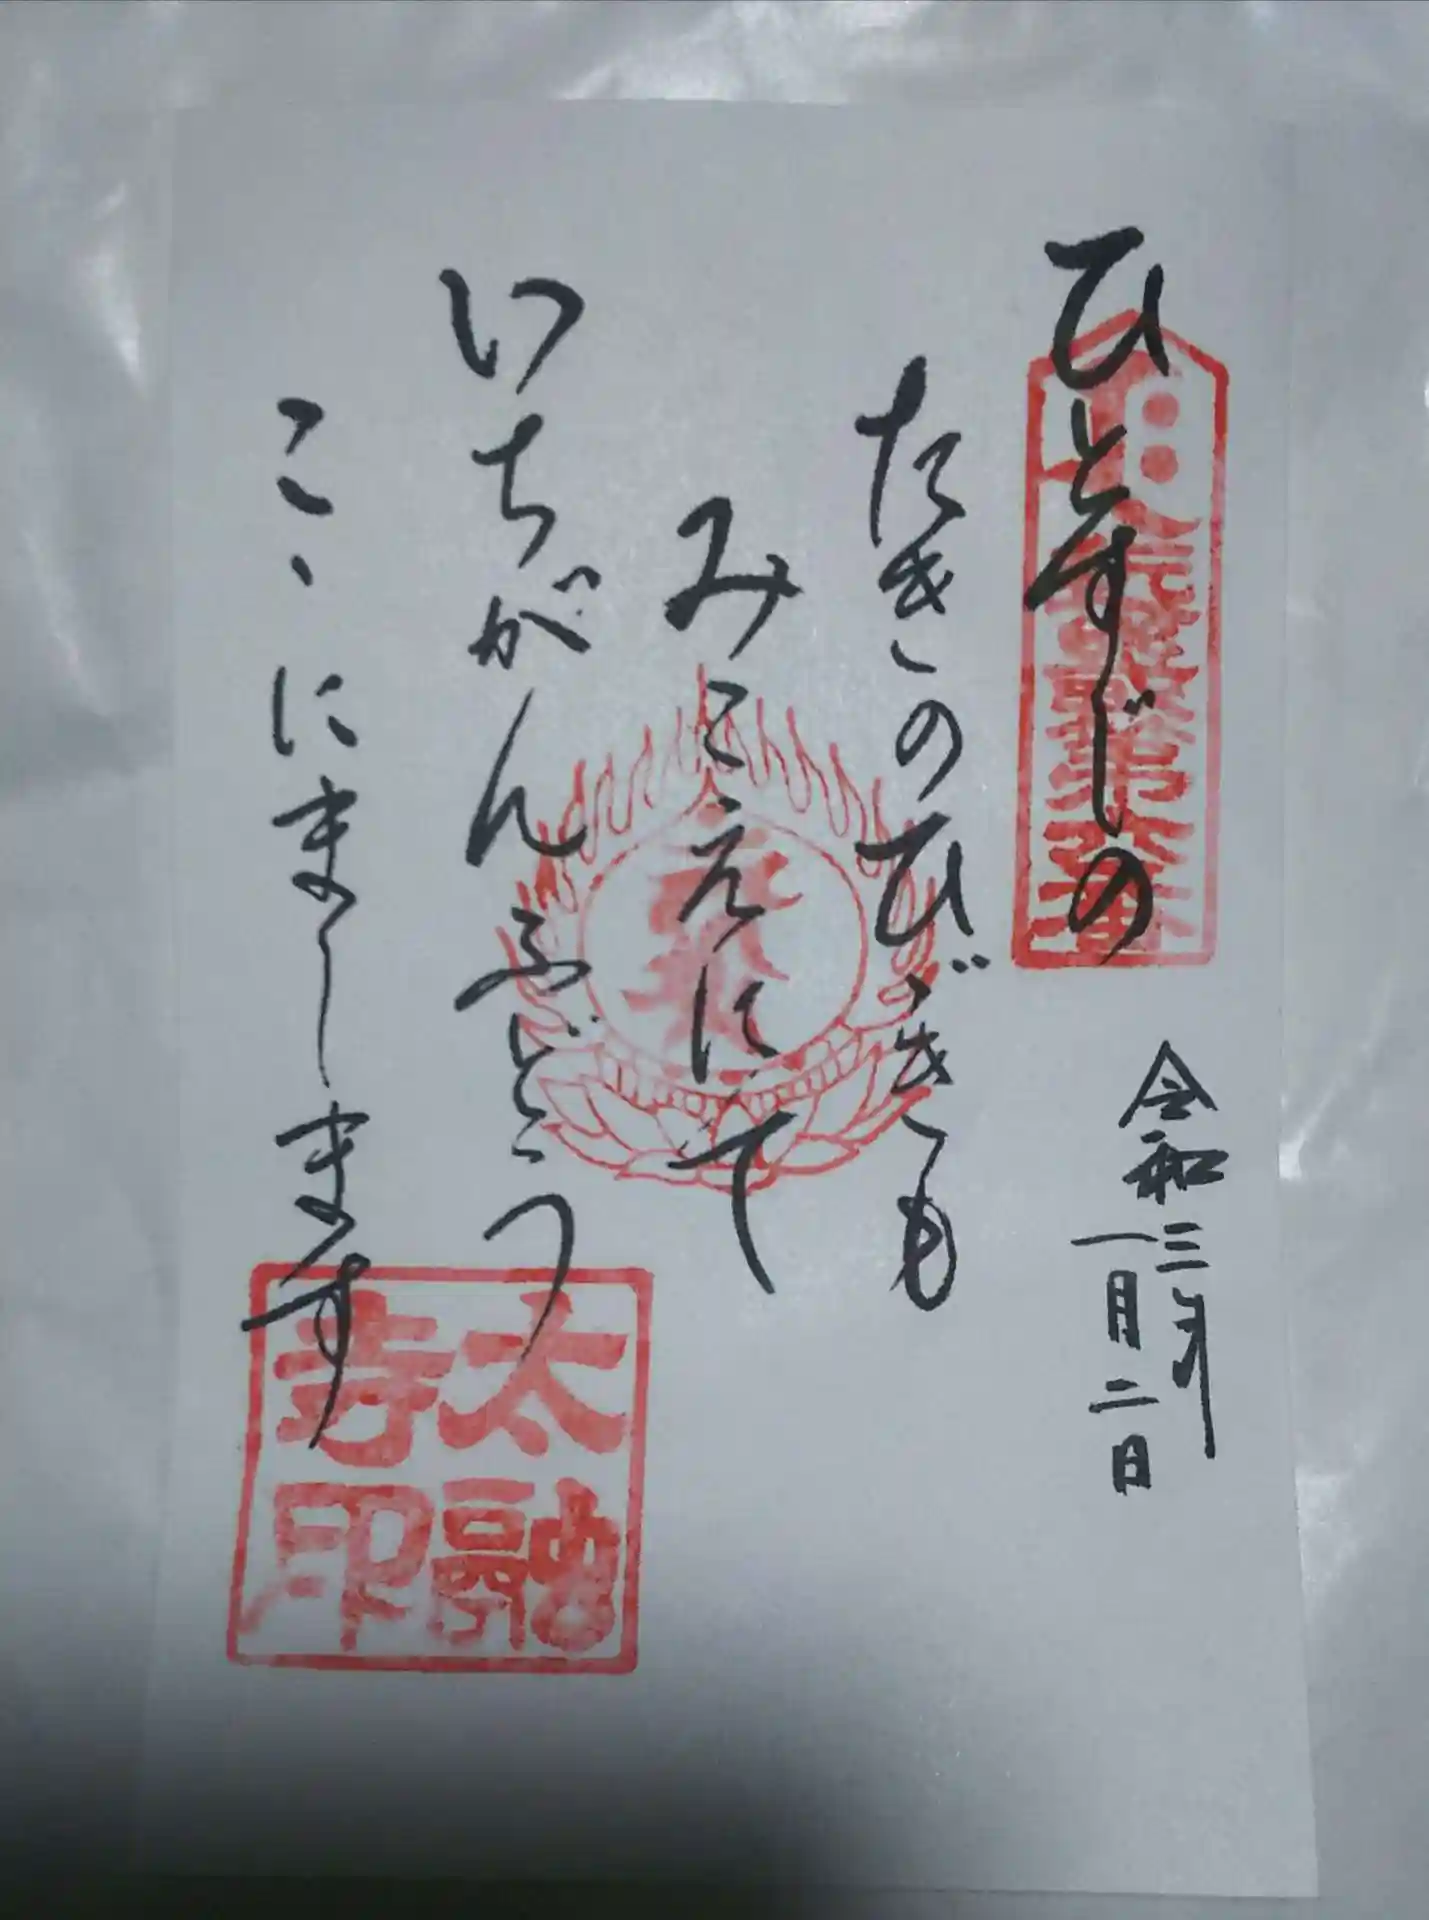 ひとすじの
たきのひゞきも
みこえにて
いちがんふどう
こゝにまします
令和三年
一月二日
太融
寺印